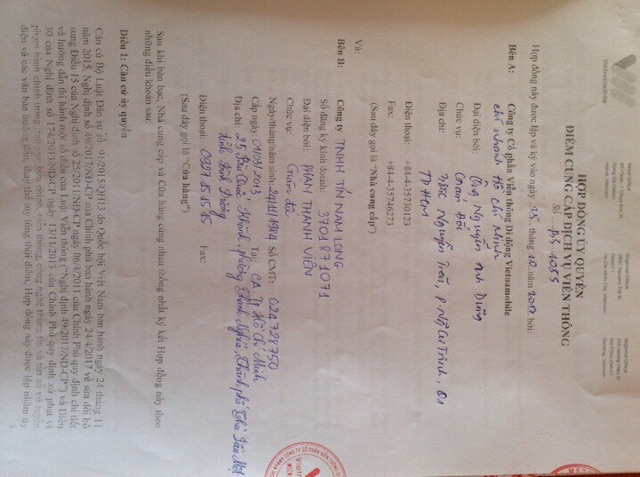 Vietnamobile
HỢP ĐỒNG ỦY QUYỀN
ĐIỂM CUNG CẤP DỊCH VỤ VIỄN THÔNG
Số
Hợp đồng này được lập và ký vào ngày 25 tháng 10 năm 2017 bởi:
Bên A: Công ty Cổ phần Viễn thông Di động Vietnamobile
chi nhánh Hồ Chí Minh
Đại diện bởi: Ông Nguyễn Anh Dũng
Chức vụ:
Địa chỉ: Nguyễn Trãi, P. Cư Trinh, Q1
TP HCM
Điện thoại: +84-4-35730123
Fax: +84-4-35746273
(Sau đây gọi là "Nhà cung cấp")
Và:
Bên B: Công ty TNHH TIN NAM LONG
Số đăng ký kinh doanh: 3701871071
Đại diện bởi: PHAN THANH VIÊN
Chức vụ: Giám đốc
Ngày/tháng/năm sinh: 24/11/1984 Số CMT: 024728750
Cấp ngày: 01/03/2013 Tại: CA TP Hồ Chí Minh
Địa chỉ: 25 Bàu Khánh, phường Chánh Nghĩa, Thành phố Thủ Dầu Một
tỉnh Bình Dương
Điện thoại: 0927.15.15.15 Fax:
(Sau đây gọi là "Cửa hàng")
Sau khi bàn bạc, Nhà cung cấp và Cửa hàng cùng nhau thống nhất ký kết Hợp đồng này theo
những điều khoản sau:
Điều 1: Căn cứ ủy quyền
Căn cứ Bộ Luật Dân sự số 01/2015/QH13 do Quốc hội Việt Nam ban hành ngày 24 tháng 11
năm 2015, Nghị định số 49/2017/NĐ-CP của Chính phủ ban hành ngày 24/4/2017 về sửa đổi bổ
sung Điều 15 của Nghị định số 25/2011/NĐ-CP ngày 06/4/2011 của Chính Phủ quy định chi tiết
và hướng dẫn thi hành một số điều của Luật Viễn thông ("Nghị định 49/2017/NĐ-CP") và Điều
30 của Nghị định số 174/2013/NĐ-CP ngày 13/11/2013 của Chính Phủ quy định xử phạt vi
phạm hành chính trong bưu chính, viễn thông, công nghệ thông tin và tần số vô tuyến
điện và các văn bản thay thế tùy từng thời điểm. Hợp đồng này được lập nhằm ủy